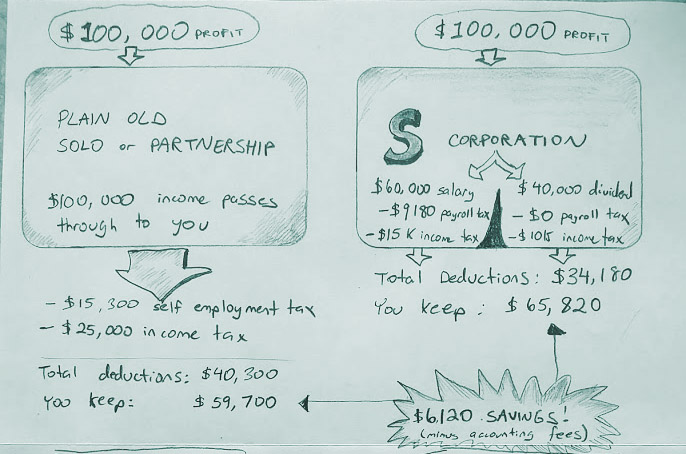 $100,000 PROFIT
PLAIN OLD
SOLO or PARTNERSHIP
$100,000 income passes
through to you
- $15,300 self employment tax
- $25,000 income tax
Total deductions: $40,300
You keep: $59,700
$100,000 PROFIT
S CORPORATION
$60,000 salary
- $9180 payroll tax
- $15K income tax
$40,000 dividend
- $0 payroll tax
- $10K income tax
Total Deductions: $34,180
You keep: $65,820
$6,120 SAVINGS!
(minus accounting fees)